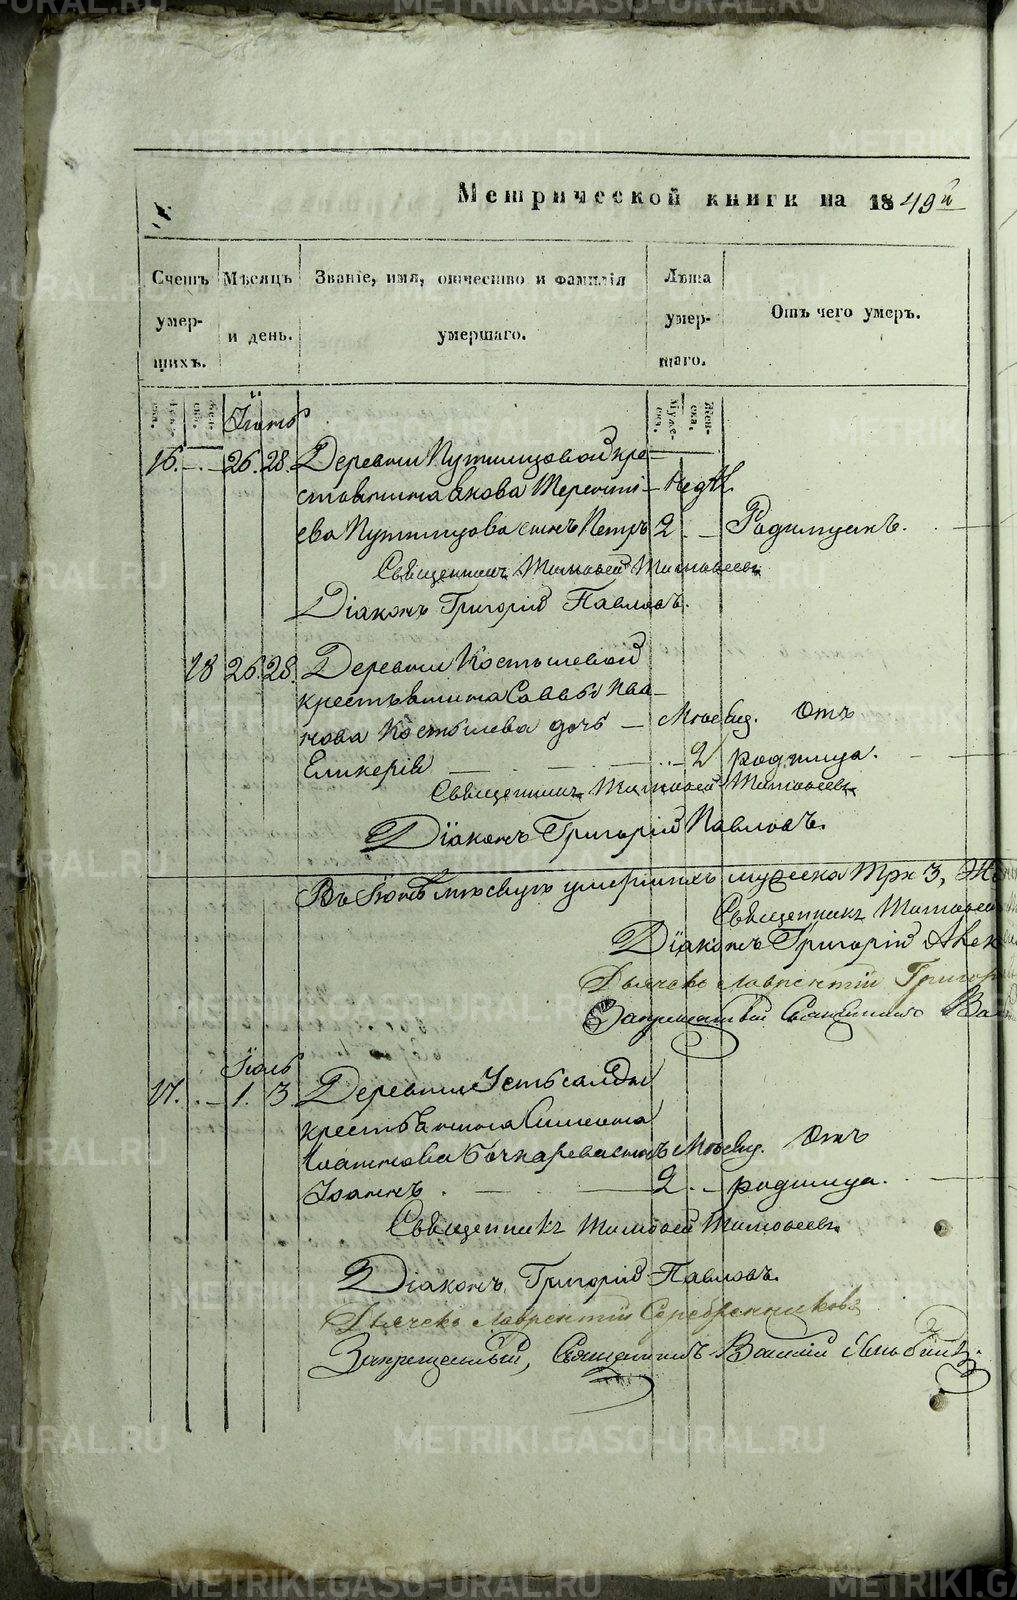 METRIKI.GASO-URAL.RU
Метрической книги на 1849й
Счетъ умер- шихъ.
Мѣсяцъ и день.
Званіе, имя, отчество и фамилія умершаго.
Лѣта умер- шаго.
Отъ чего умеръ.
Іюнь
16. 26. 28. Деревни Путимцовой кре-
стьянина Якова Теренть- Недѣл.
ева Путимцова сынъ Петръ 2 Родимцемъ.
Священникъ Тимофей Тимофеевъ
Діаконъ Григорій Павловъ.
18 26. 28. Деревни Костылевой
крестьянина Саввы Ива-
нова Костылева дочь Мѣсяц. Отъ
Гликерія 2 родимца.
Священникъ Тимофей Тимофеевъ
Діаконъ Григорій Павловъ.
Въ Іюнѣ мѣсяцѣ умершихъ мужеска три 3,
Священникъ Тимофей
Діаконъ Григорій
Дьячекъ Лаврентій Григор
Запрещенный Священникъ Ва
Іюль
17. 1. 3. Деревни Устьсалды
крестьянина Симеона
Іоаннова Бочкарева сынъ Мѣсяц. Отъ
Іоаннъ 2 родимца.
Священникъ Тимофей Тимофеевъ
Діаконъ Григорій Павловъ.
Дьячекъ Лаврентій Серебренниковъ
Запрещенный, Священникъ Василій